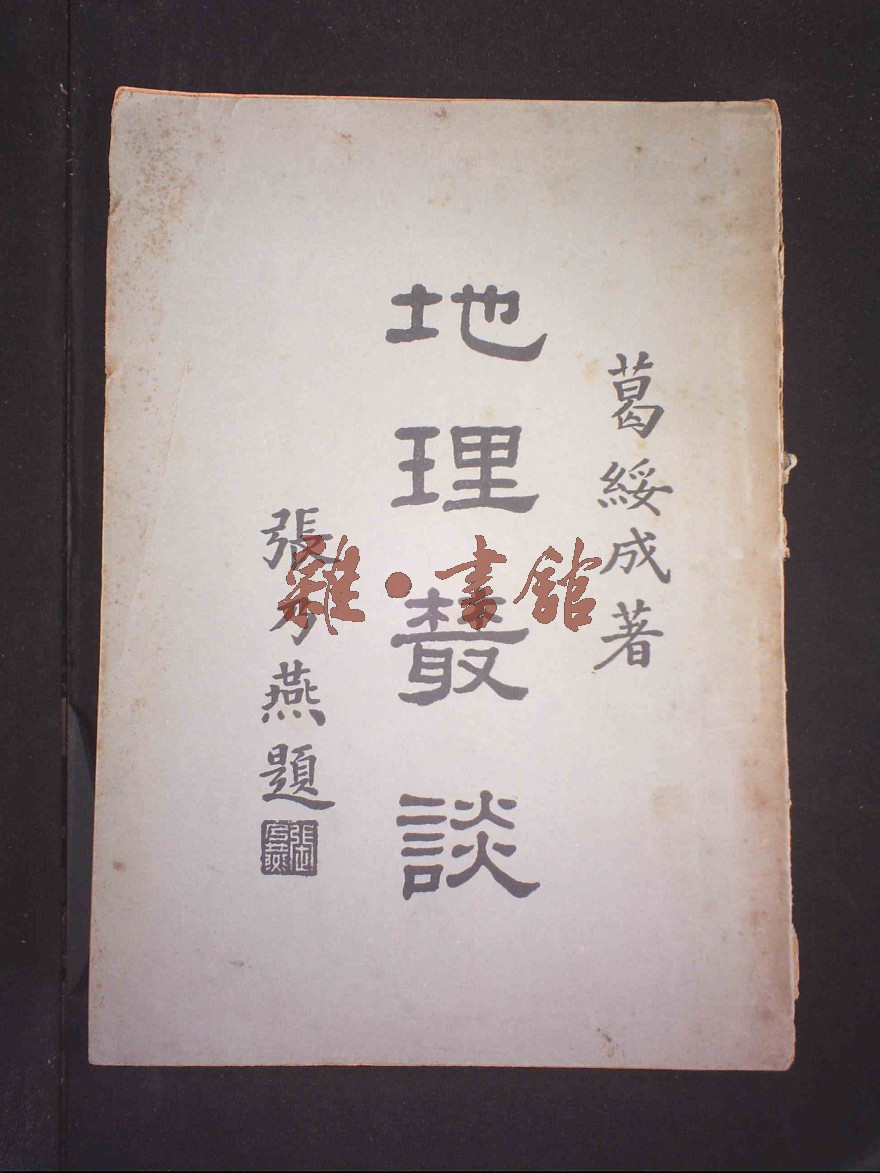 葛綏成著
地理叢談
張乃燕題
雜·書館